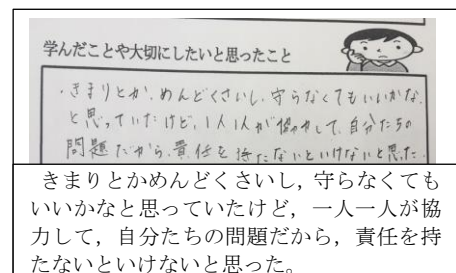 学んだことや大切にしたいと思ったこと
・きまりとか、めんどくさいし、守らなくてもいいかな
と思っていたけど、1人1人が協力して、自分たちの
問題だから、責任を持たないといけないと思った。
きまりとかめんどくさいし，守らなくても
いいかなと思っていたけど，一人一人が協
力して，自分たちの問題だから，責任を持
たないといけないと思った。